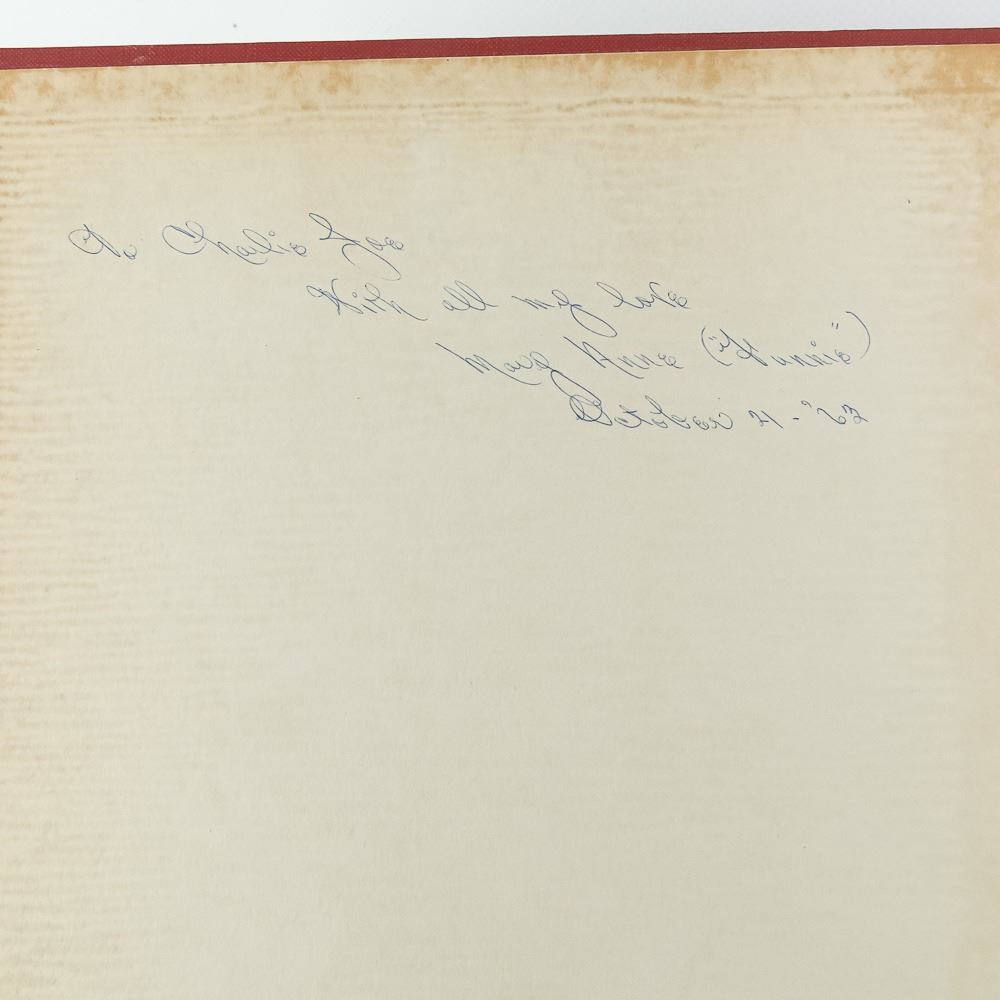 To Charlie Joe
With all my love
Mary Anne
October 21 - '62